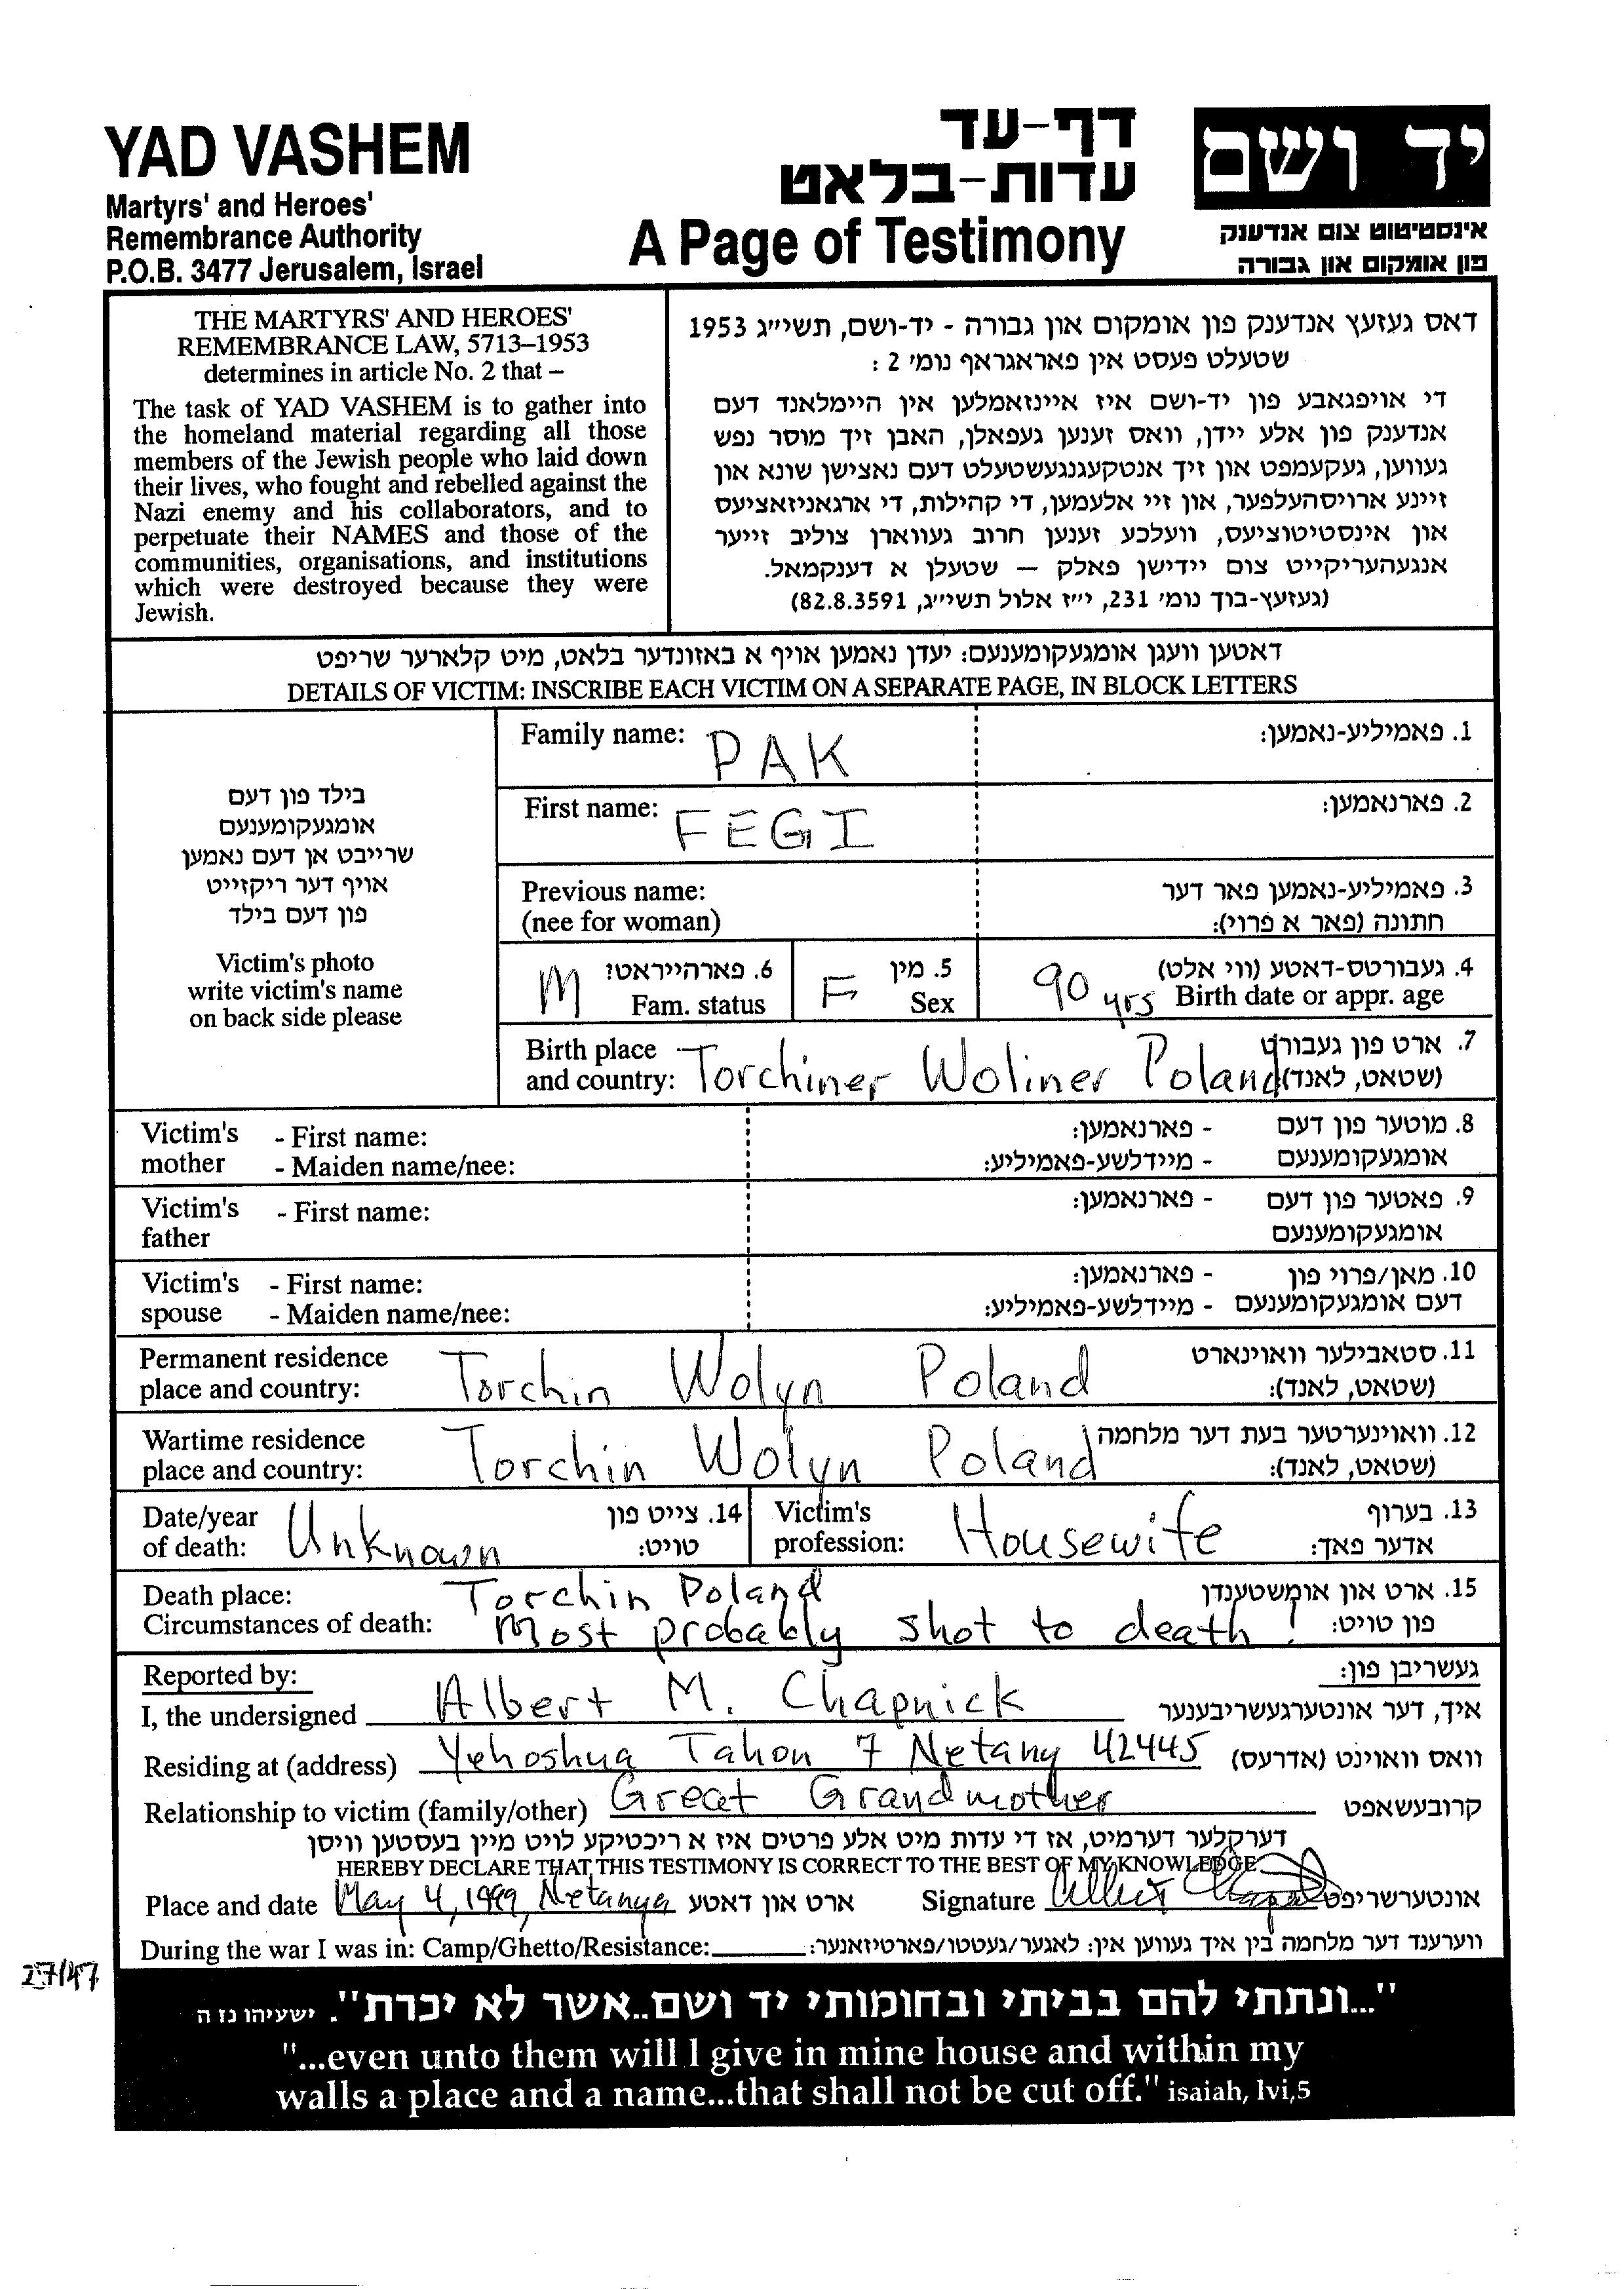 YAD VASHEM
Martyrs' and Heroes'
Remembrance Authority
P.O.B. 3477 Jerusalem, Israel
דף-עד
עדות-בלאט
A Page of Testimony
יד ושם
אינסטיטוט צום אנדענק
פון אומקום און גבורה
THE MARTYRS' AND HEROES'
REMEMBRANCE LAW, 5713–1953
determines in article No. 2 that –
The task of YAD VASHEM is to gather into
the homeland material regarding all those
members of the Jewish people who laid down
their lives, who fought and rebelled against the
Nazi enemy and his collaborators, and to
perpetuate their NAMES and those of the
communities, organisations, and institutions
which were destroyed because they were
Jewish.
דאס געזעץ אנדענק פון אומקום און גבורה - יד-ושם, תשי״ג 1953
שטעלט פעסט אין פאראגראף נומ׳ 2 :
די אויפגאבע פון יד-ושם איז איינזאמלען אין היימלאנד דעם
אנדענק פון אלע יידן, וואס זענען געפאלן, האבן זיך מוסר נפש
געווען, געקעמפט און זיך אנטקעגנגעשטעלט דעם נאצישן שונא און
זיינע ארויסהעלפער, און זיי אלעמען, די קהילות, די ארגאניזאציעס
און אינסטיטוציעס, וועלכע זענען חרוב געווארן צוליב זייער
אנגעהעריקייט צום יידישן פאלק – שטעלן א דענקמאל.
(געזעץ-בוך נומ׳ 231, י״ז אלול תשי״ג, 82.8.3591)
דאטען וועגן אומגעקומענעם: יעדן נאמען אויף א באזונדער בלאט, מיט קלארער שריפט
DETAILS OF VICTIM: INSCRIBE EACH VICTIM ON A SEPARATE PAGE, IN BLOCK LETTERS
בילד פון דעם
אומגעקומענעם
שרייבט אן דעם נאמען
אויף דער ריקזייט
פון דעם בילד
Victim's photo
write victim's name
on back side please
Family name: PAK 1. פאמיליע-נאמען:
First name: FEGI 2. פארנאמען:
Previous name: 3. פאמיליע-נאמען פאר דער
(nee for woman) חתונה (פאר א פרוי):
M 6. פארהייראט? F 5. מין 90 yrs 4. געבורטס-דאטע (ווי אלט)
Fam. status Sex Birth date or appr. age
Birth place Torchiner Woliner Poland 7. ארט פון געבורט
and country: (שטאט, לאנד)
Victim's - First name: - פארנאמען: 8. מוטער פון דעם
mother - Maiden name/nee: - מיידלשע-פאמיליע: אומגעקומענעם
Victim's - First name: - פארנאמען: 9. פאטער פון דעם
father אומגעקומענעם
Victim's - First name: - פארנאמען: 10. מאן/פרוי פון
spouse - Maiden name/nee: - מיידלשע-פאמיליע: דעם אומגעקומענעם
Permanent residence Torchin Wolyn Poland 11. סטאבילער וואוינארט
place and country: (שטאט, לאנד):
Wartime residence Torchin Wolyn Poland 12. וואוינערטער בעת דער מלחמה
place and country: (שטאט, לאנד):
Date/year Unknown 14. צייט פון Victim's Housewife 13. בערוף
of death: טויט: profession: אדער פאך:
Death place: Torchin Poland 15. ארט און אומשטענדן
Circumstances of death: Most probably shot to death! פון טויט:
Reported by: געשריבן פון:
I, the undersigned Albert M. Chapnick איך, דער אונטערגעשריבענער
Residing at (address) Yehoshua Tahon 7 Netany 42445 וואס וואוינט (אדרעס)
Relationship to victim (family/other) Great Grandmother קרובעשאפט
דערקלער דערמיט, אז די עדות מיט אלע פרטים איז א ריכטיקע לויט מיין בעסטען וויסן
HEREBY DECLARE THAT THIS TESTIMONY IS CORRECT TO THE BEST OF MY KNOWLEDGE
Place and date May 4, 1999, Netanya ארט און דאטע Signature Albert Chapnick אונטערשריפט
During the war I was in: Camp/Ghetto/Resistance: ווערענד דער מלחמה בין איך געווען אין: לאגער/געטטו/פארטיזאנער:
27/47
"...ונתתי להם בביתי ובחומותי יד ושם..אשר לא יכרת". ישעיהו נז ה
"...even unto them will I give in mine house and within my
walls a place and a name...that shall not be cut off." isaiah, lvi,5